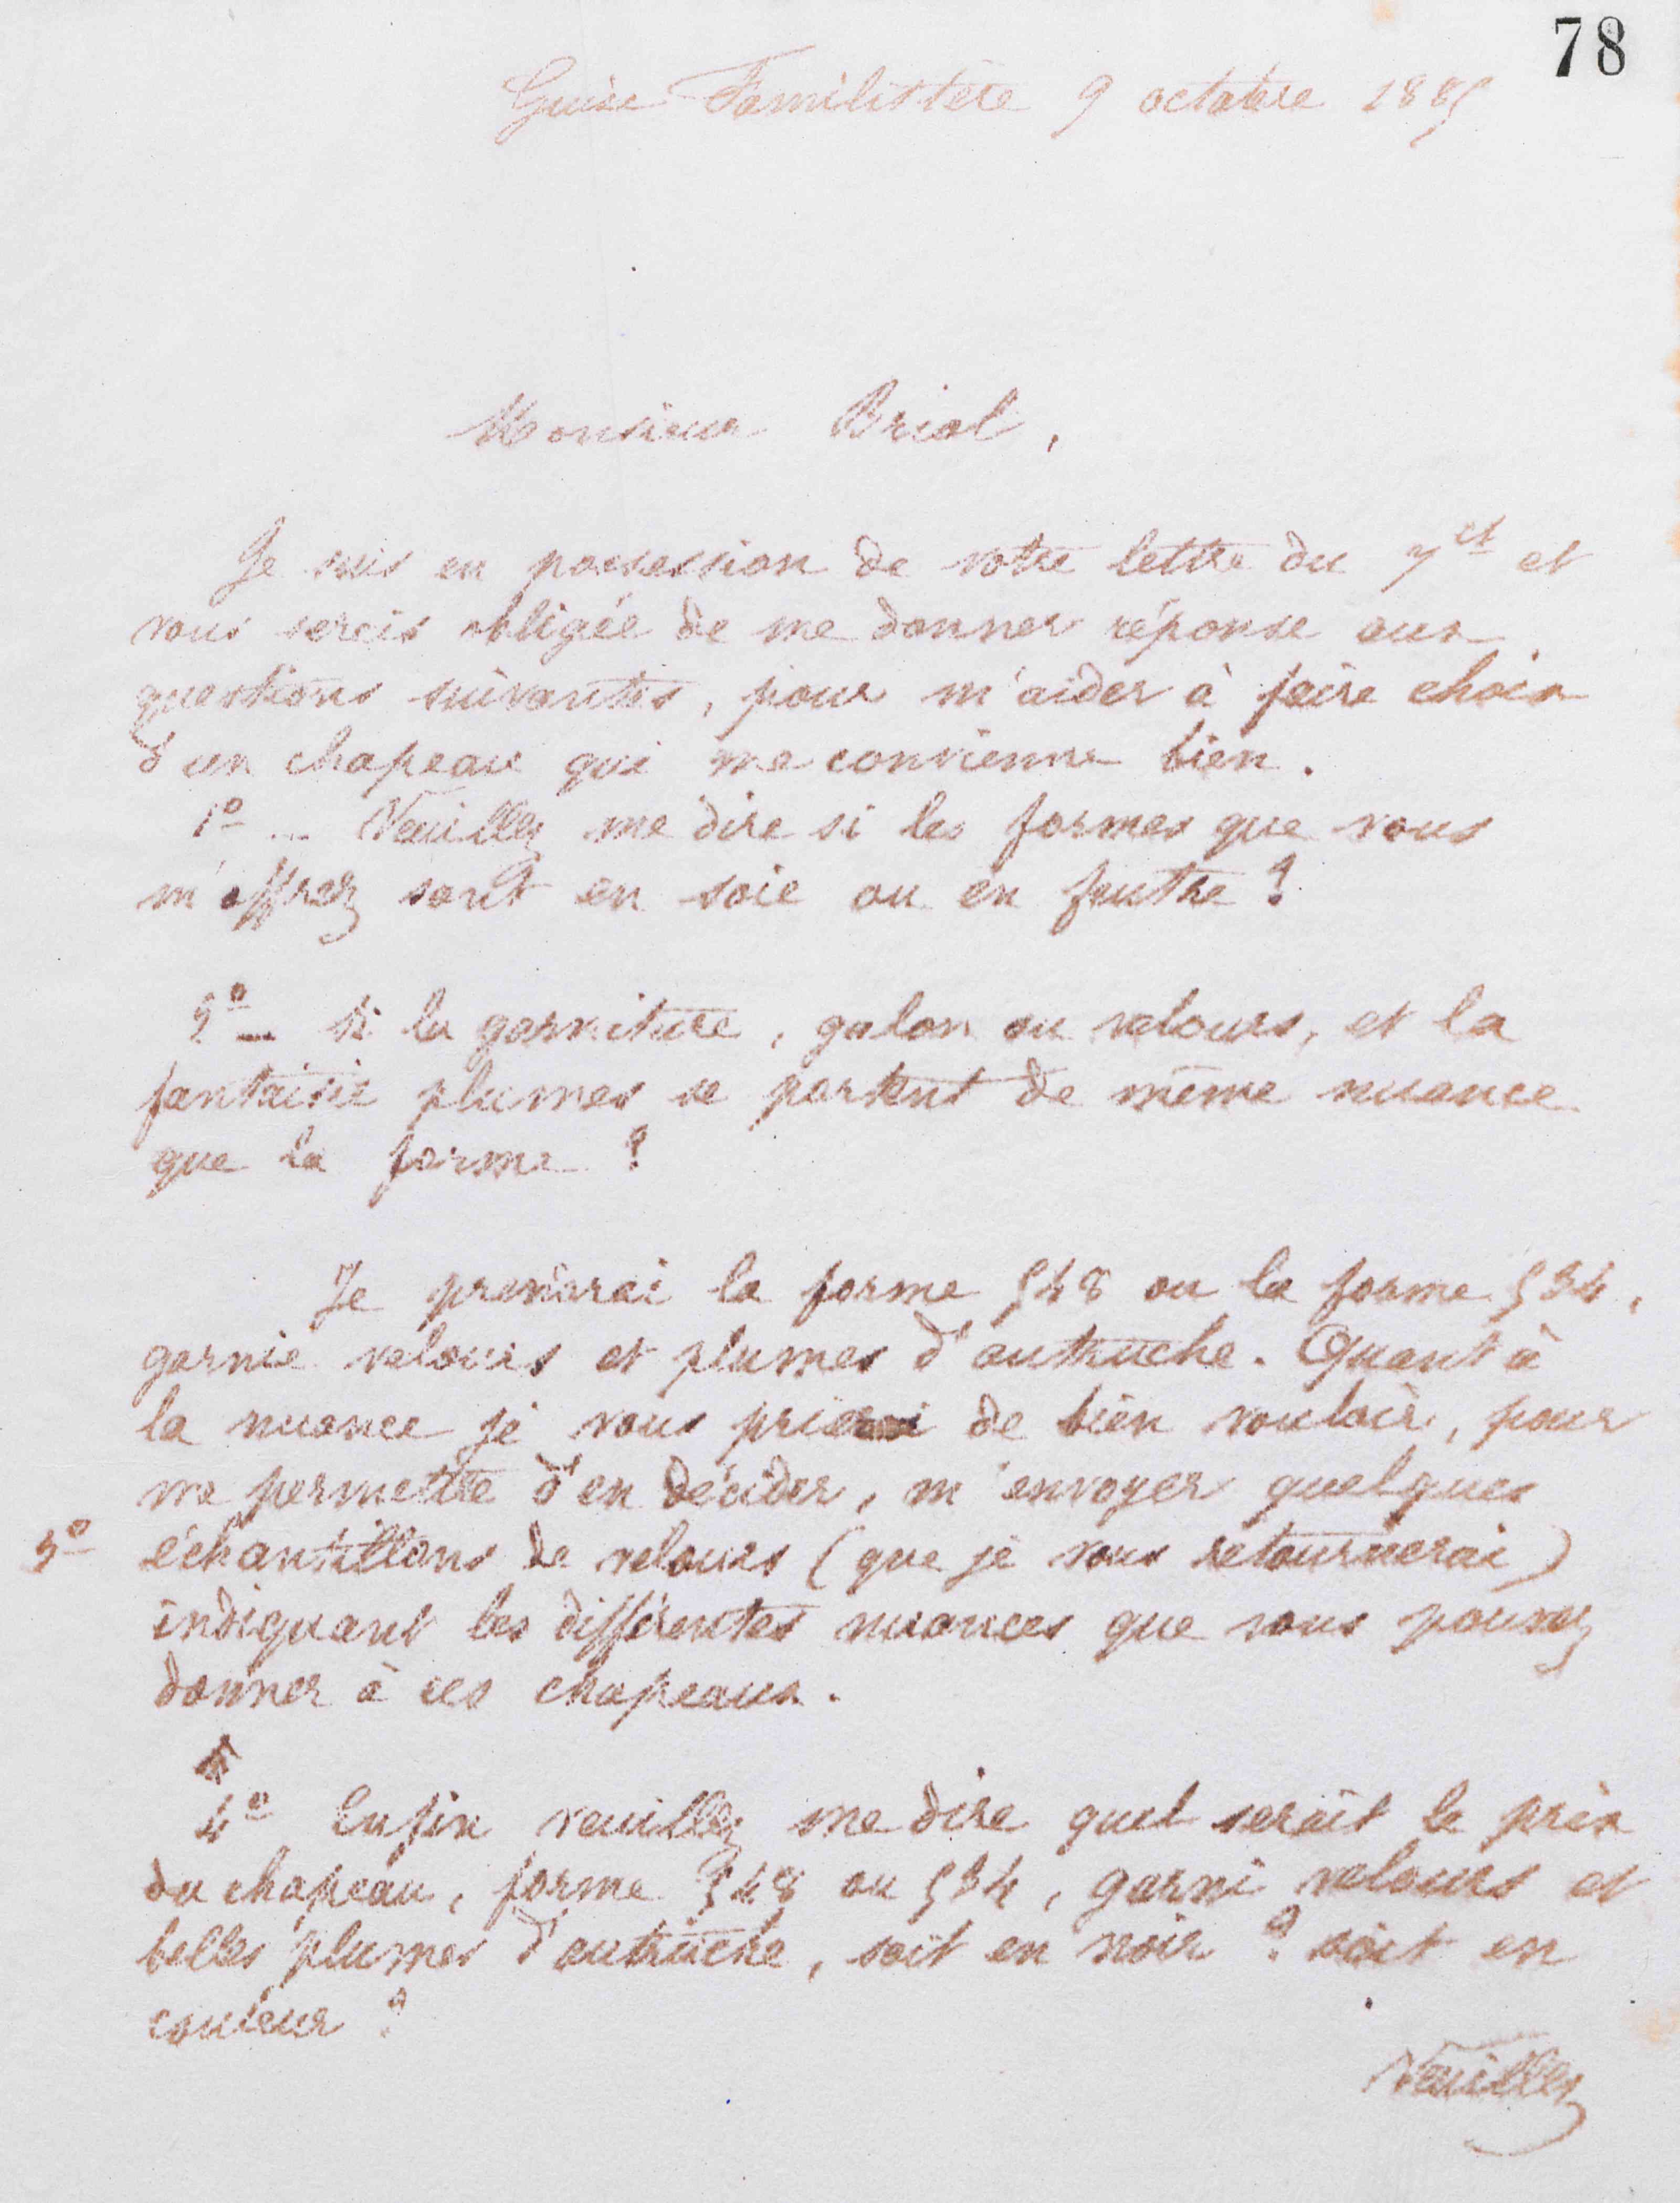 78
Guise Familistère 9 octobre 1885
Monsieur Briol,
Je suis en possession de votre lettre du 7 ct et
vous serais obligée de me donner réponse aux
questions suivantes, pour m'aider à faire choix
d'un chapeau qui me convienne bien.
1o _ Veuillez me dire si les formes que vous
m'offrez sont en soie ou en feutre ?
2o _ si la garniture, galon ou velours, et la
fantaisie plumes se portent de même nuance
que la forme ?
Je prendrai la forme 548 ou la forme 534,
garnie velours et plumes d'autruche. Quant à
la nuance je vous prierai de bien vouloir, pour
me permettre d'en décider, m'envoyer quelques
3o échantillons de velours (que je vous retournerai)
indiquant les différentes nuances que vous pouvez
donner à ces chapeaux.
4o Enfin veuillez me dire quel serait le prix
du chapeau, forme 548 ou 534, garni velours et
belles plumes d'autruche, soit en noir ? soit en
couleur ?
Veuillez